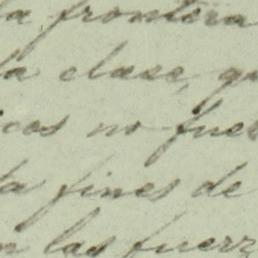 la frontera
la clase, qu
icos no fue
ta fines de
n las fuerz